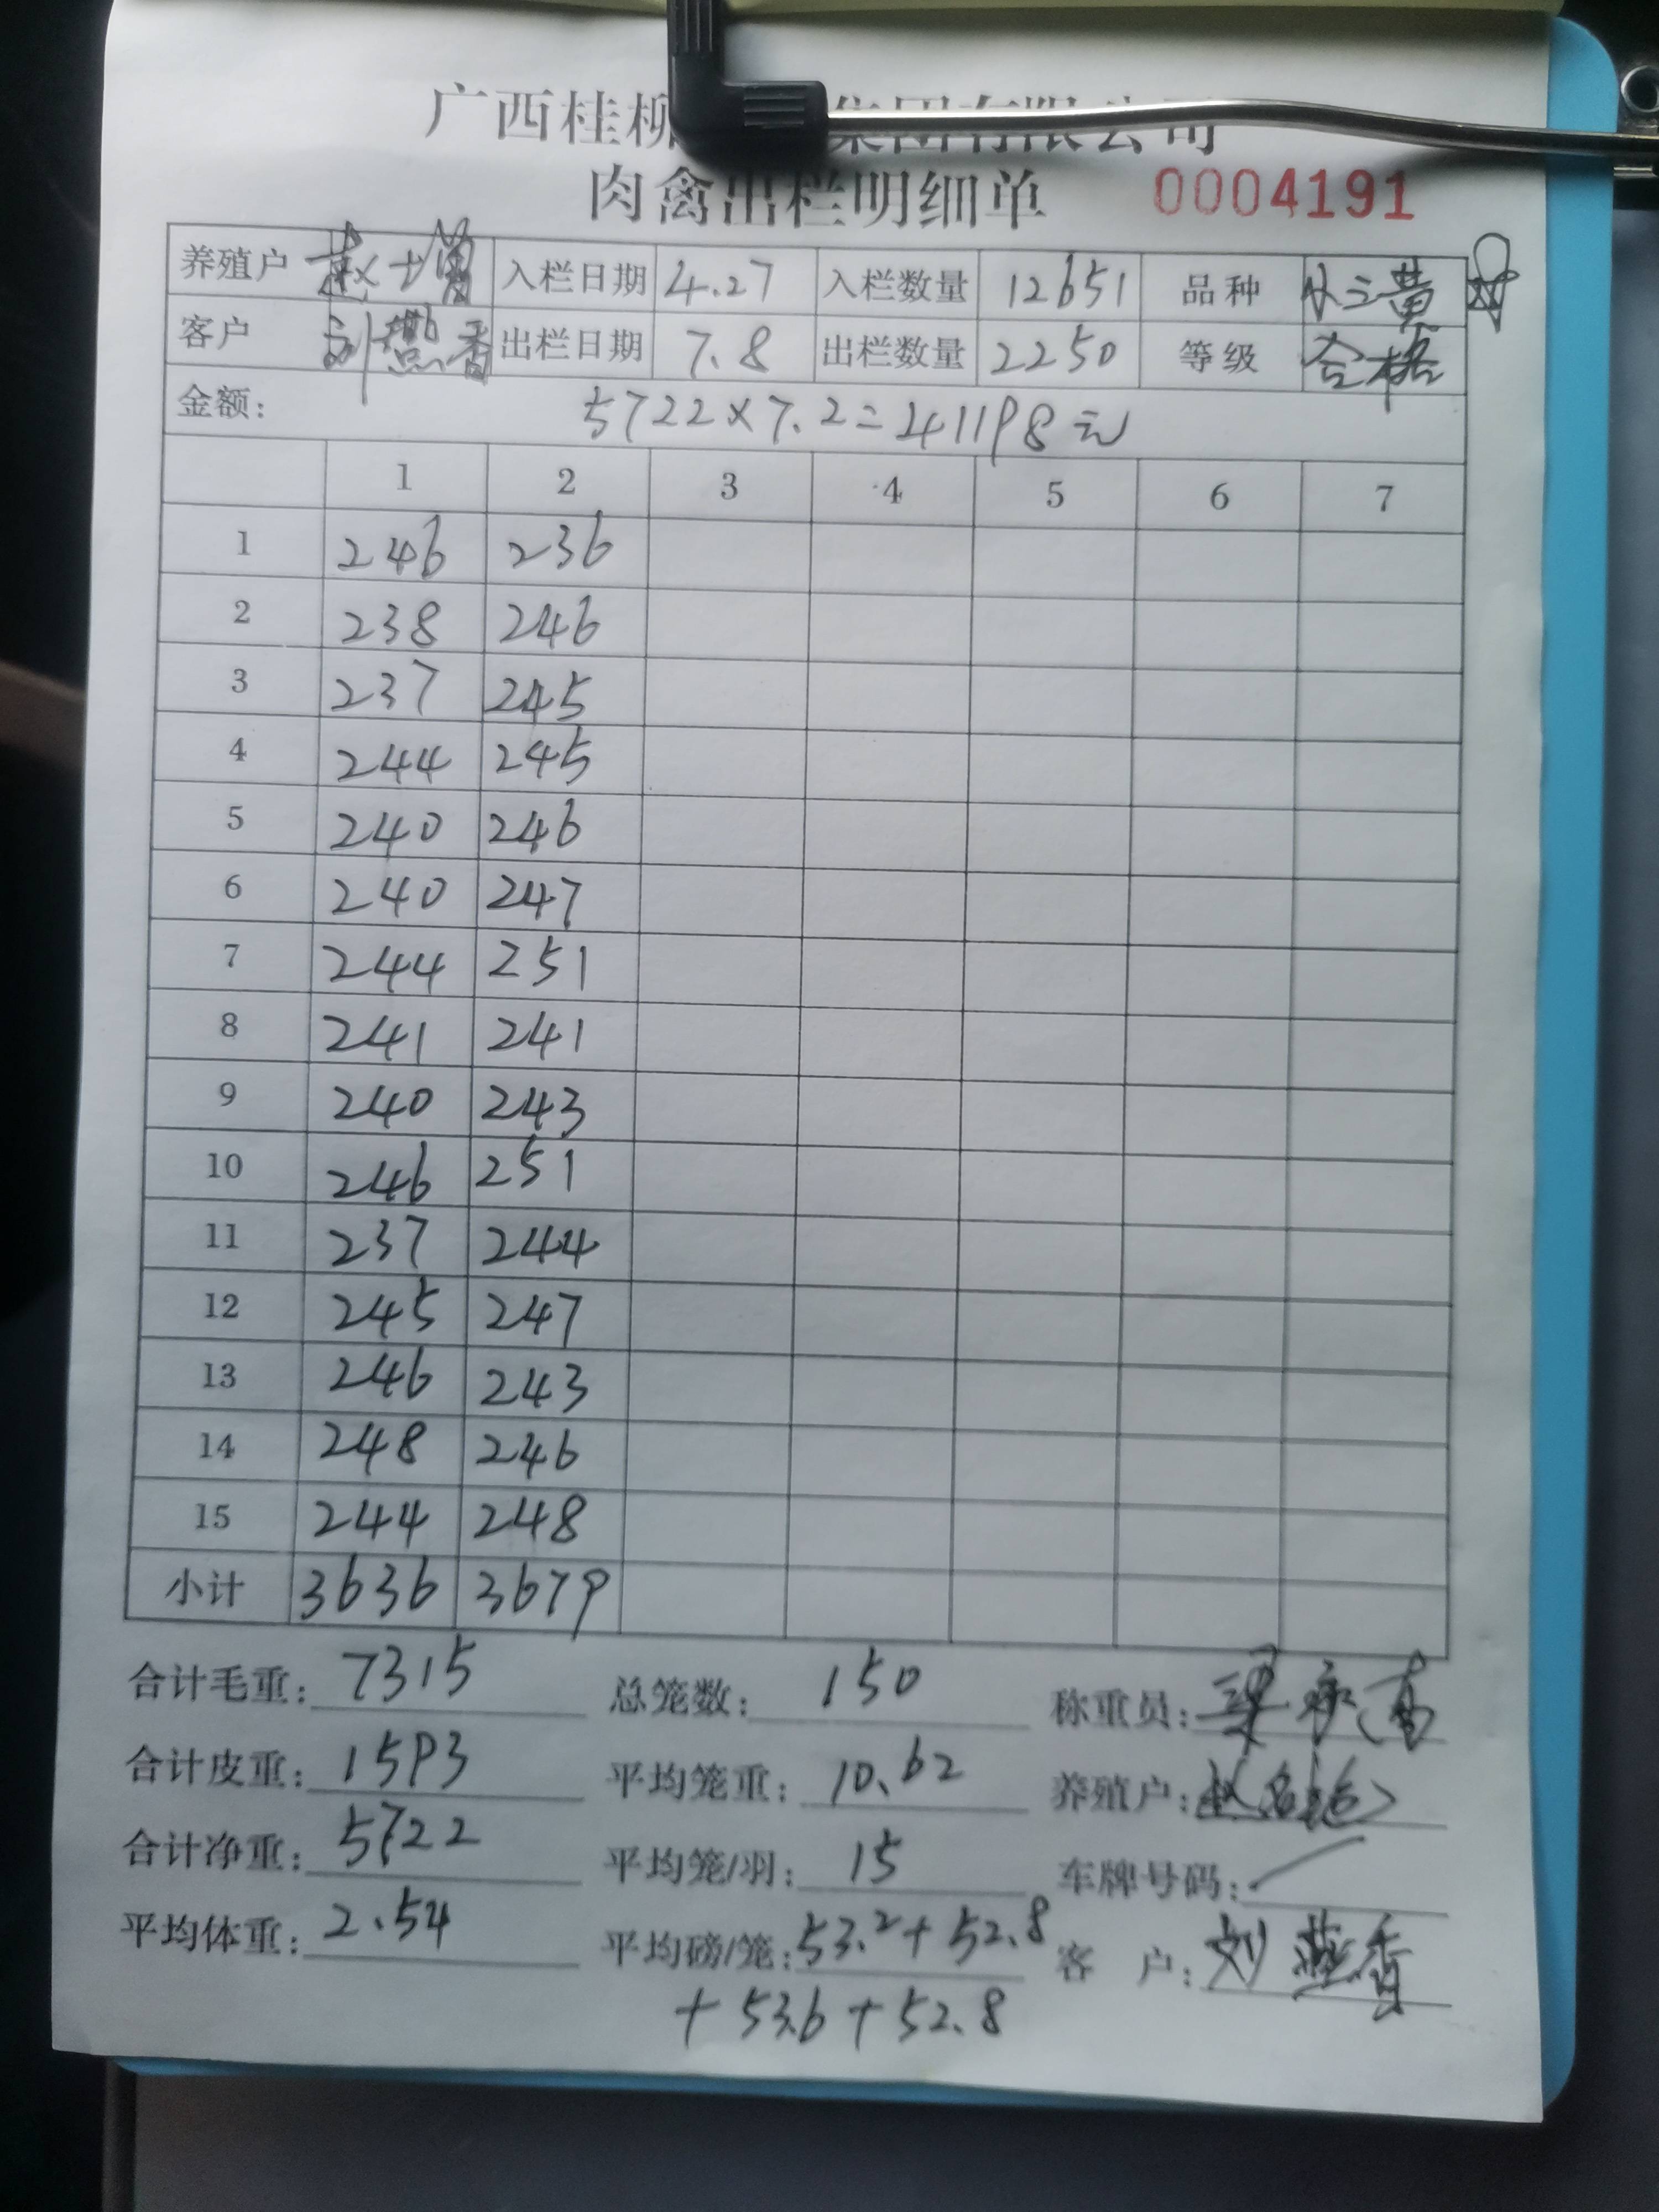 广西桂柳 集团有限公司
肉禽出栏明细单 0004191
养殖户 赵士 入栏日期 4.27 入栏数量 12651 品种 小三黄 母
客户 刘燕香 出栏日期 7.8 出栏数量 2250 等级 合格
金额: 5722×7.2=41198元
1 2 3 4 5 6 7
1 246 236
2 238 246
3 237 245
4 244 245
5 240 246
6 240 247
7 244 251
8 241 241
9 240 243
10 246 251
11 237 244
12 245 247
13 246 243
14 248 246
15 244 248
小计 3636 3679
合计毛重: 7315 总笼数: 150 称重员: 梁
合计皮重: 1593 平均笼重: 10.62 养殖户: 赵
合计净重: 5722 平均笼/羽: 15 车牌号码: /
平均体重: 2.54 平均磅/笼: 53.2+52.8 客 户: 刘燕香
+53.6+52.8